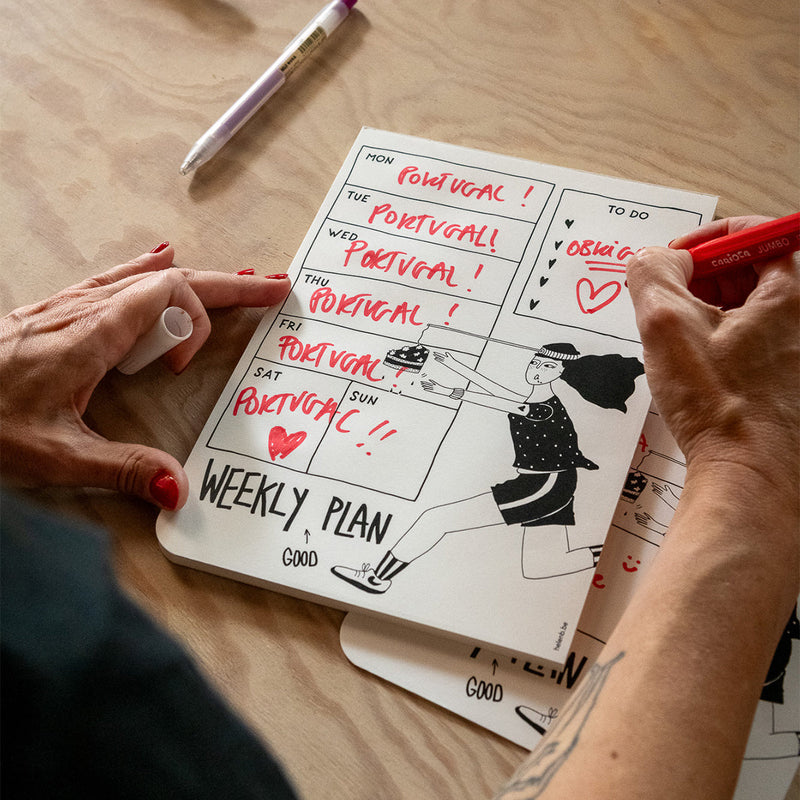 MON
PORTUGAL !
TUE
PORTUGAL!
WED
PORTUGAL !
THU
PORTUGAL !
FRI
PORTUGAL !
SAT
PORTUGAL !!
SUN
TO DO
WEEKLY PLAN
GOOD
helenb.be
CARIOCA JUMBO
GOOD